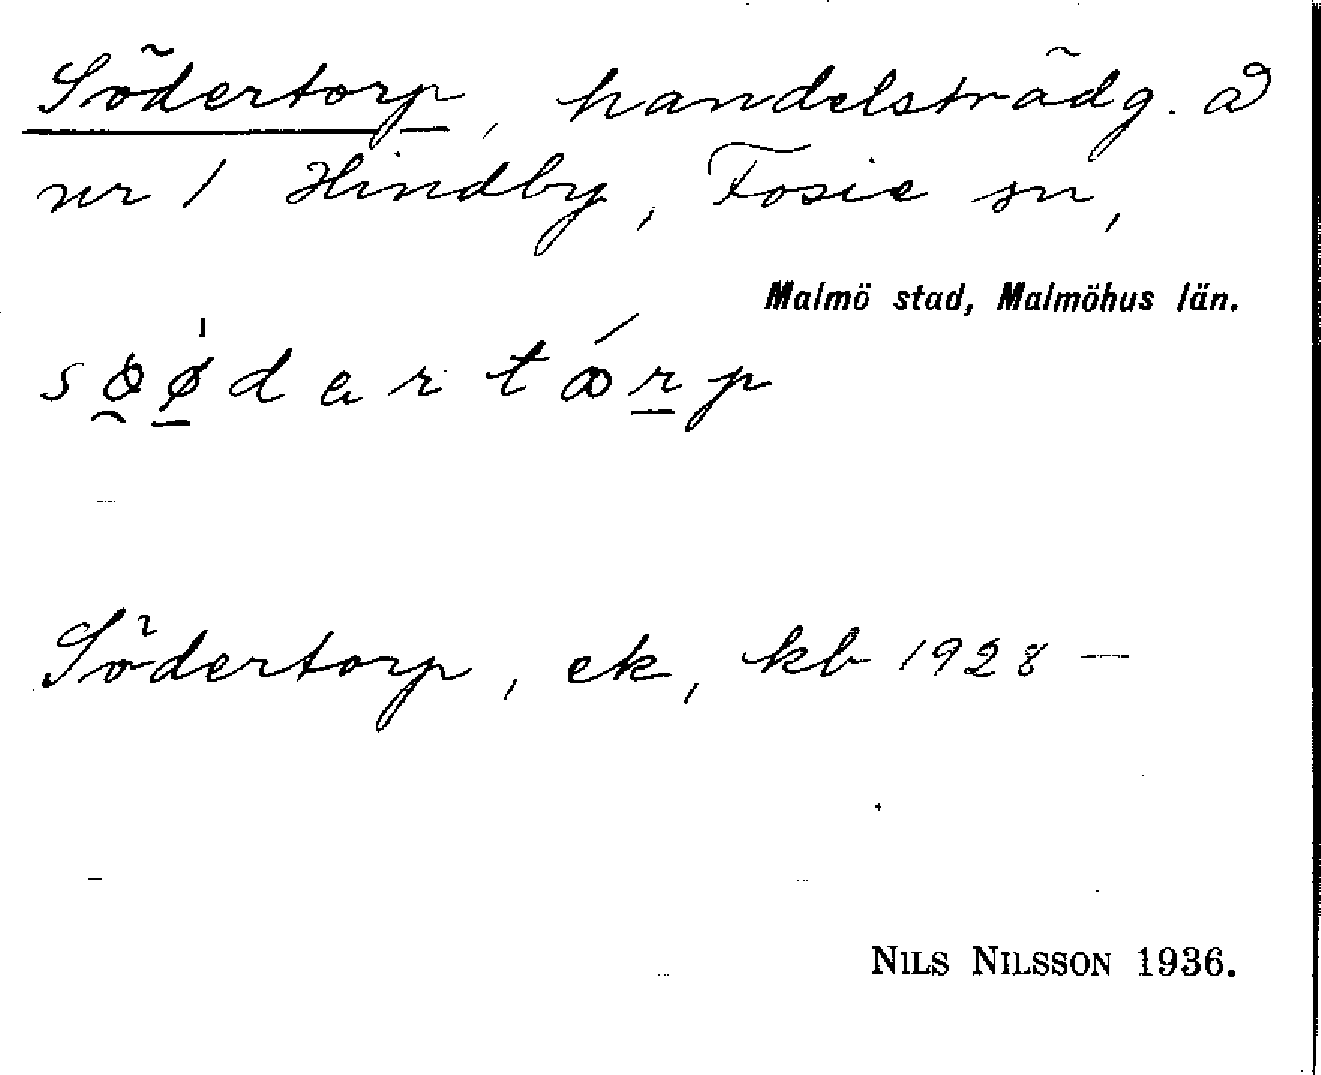 Södertorp, handelsträdg. å
nr 1 Hindby, Fosie sn,
Malmö stad, Malmöhus län.
Södertorp, ek, kb 1928 —
NILS NILSSON 1936.